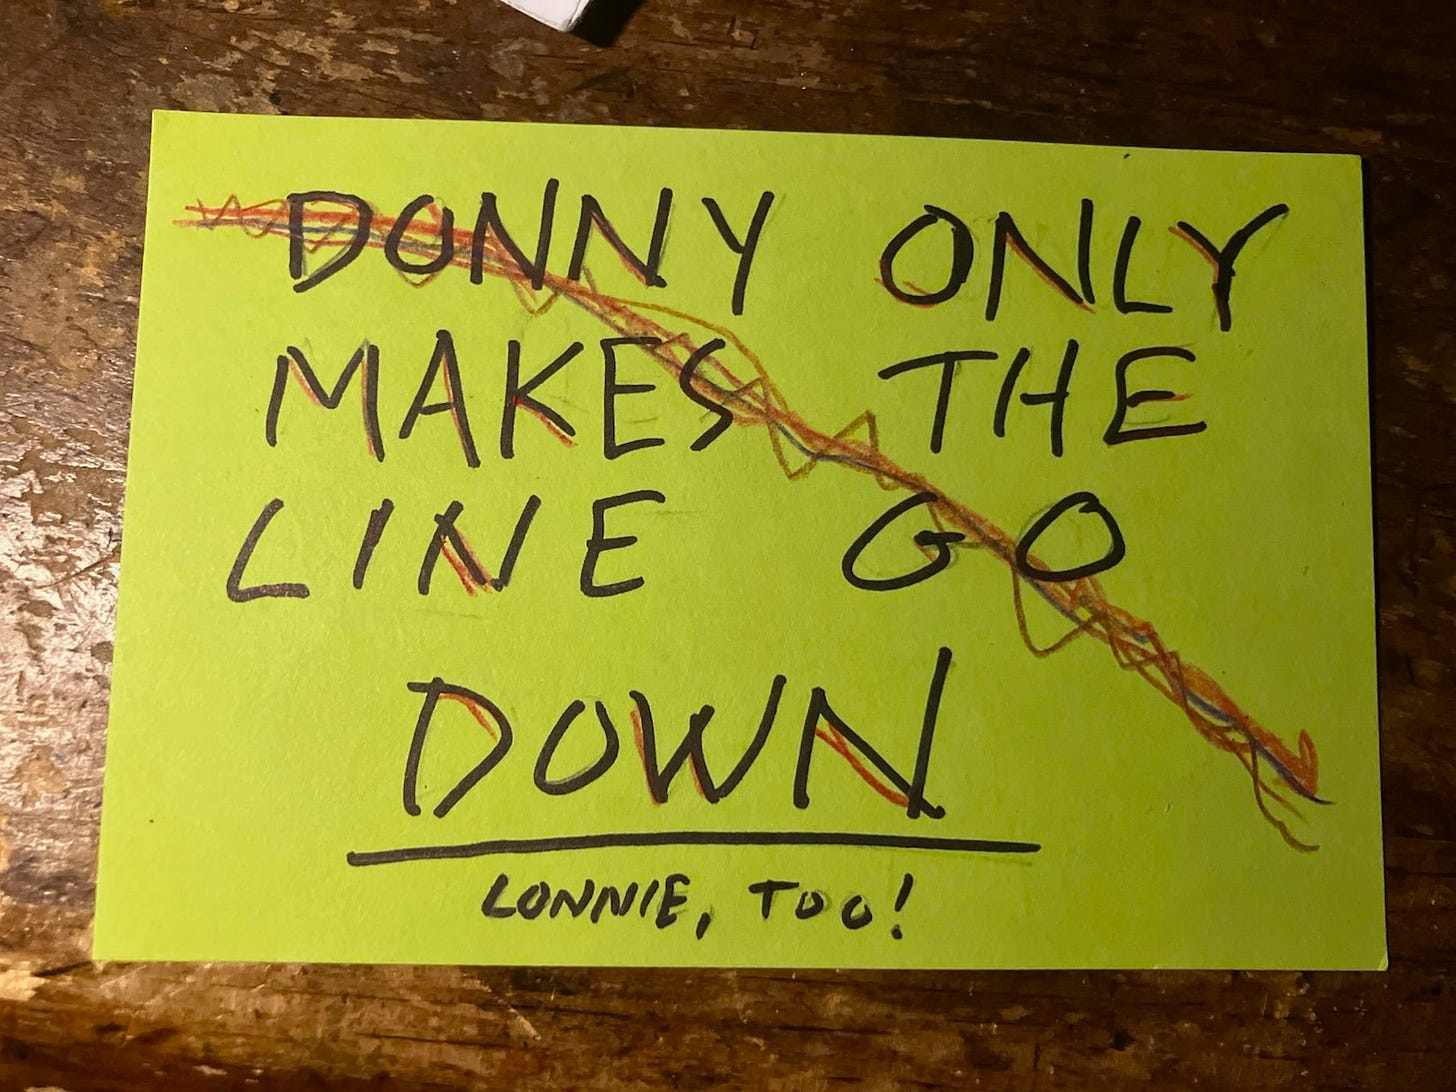 DONNY ONLY
MAKES THE
LINE GO
DOWN
LONNIE, TOO!